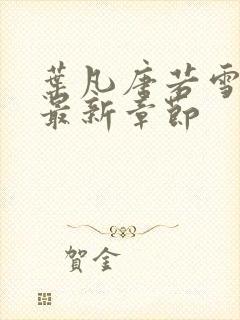 葉凡唐若雪
最新章節
賀金